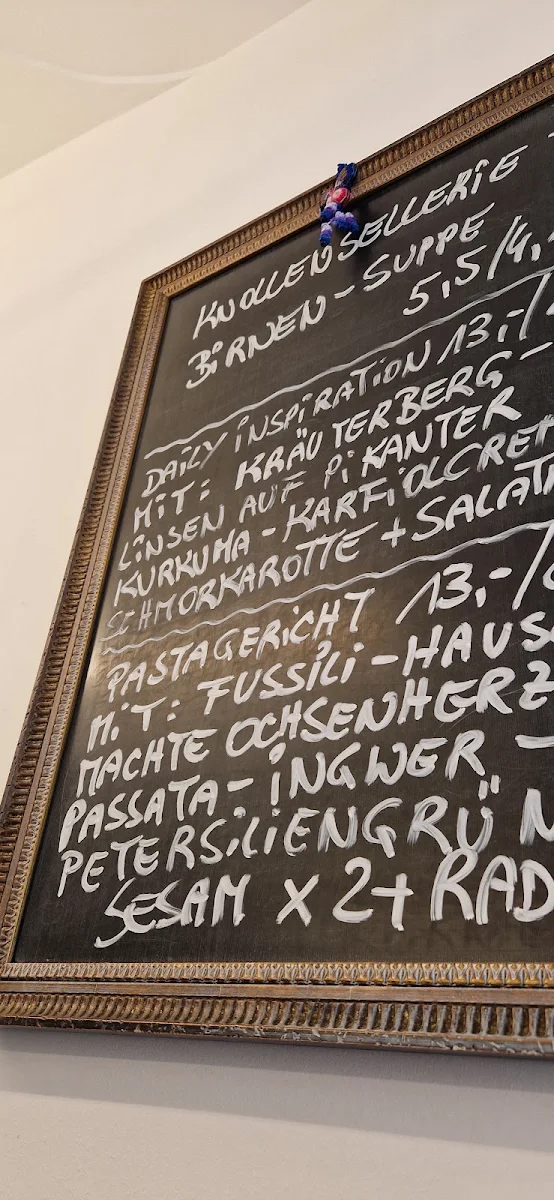 KNOLLENSELLERIE -
BIRNEN - SUPPE
5,5/4,
DAILY INSPIRATION 13,-/
MIT: KRÄUTERBERG -
LINSEN AUF PIKANTER
KURKUMA - KARFIOLCREM
SCHMORKAROTTE + SALAT
PASTAGERICHT 13,-/
MIT: FUSSILI - HAUS
MACHTE OCHSENHERZ
PASSATA - INGWER -
PETERSILIENGRÜN
SESAM X 2 + RAD